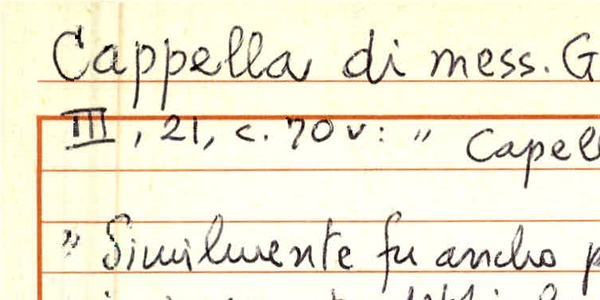 Cappella di mess. G
III, 21, c. 70 v: " Capell
" Similmente fu ancho p